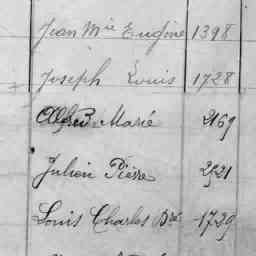 Jean Mie Eugène 1398
Joseph Louis 1728
Alfred Marie 2169
Julien Pierre 2521
Louis Charles Bré 1729